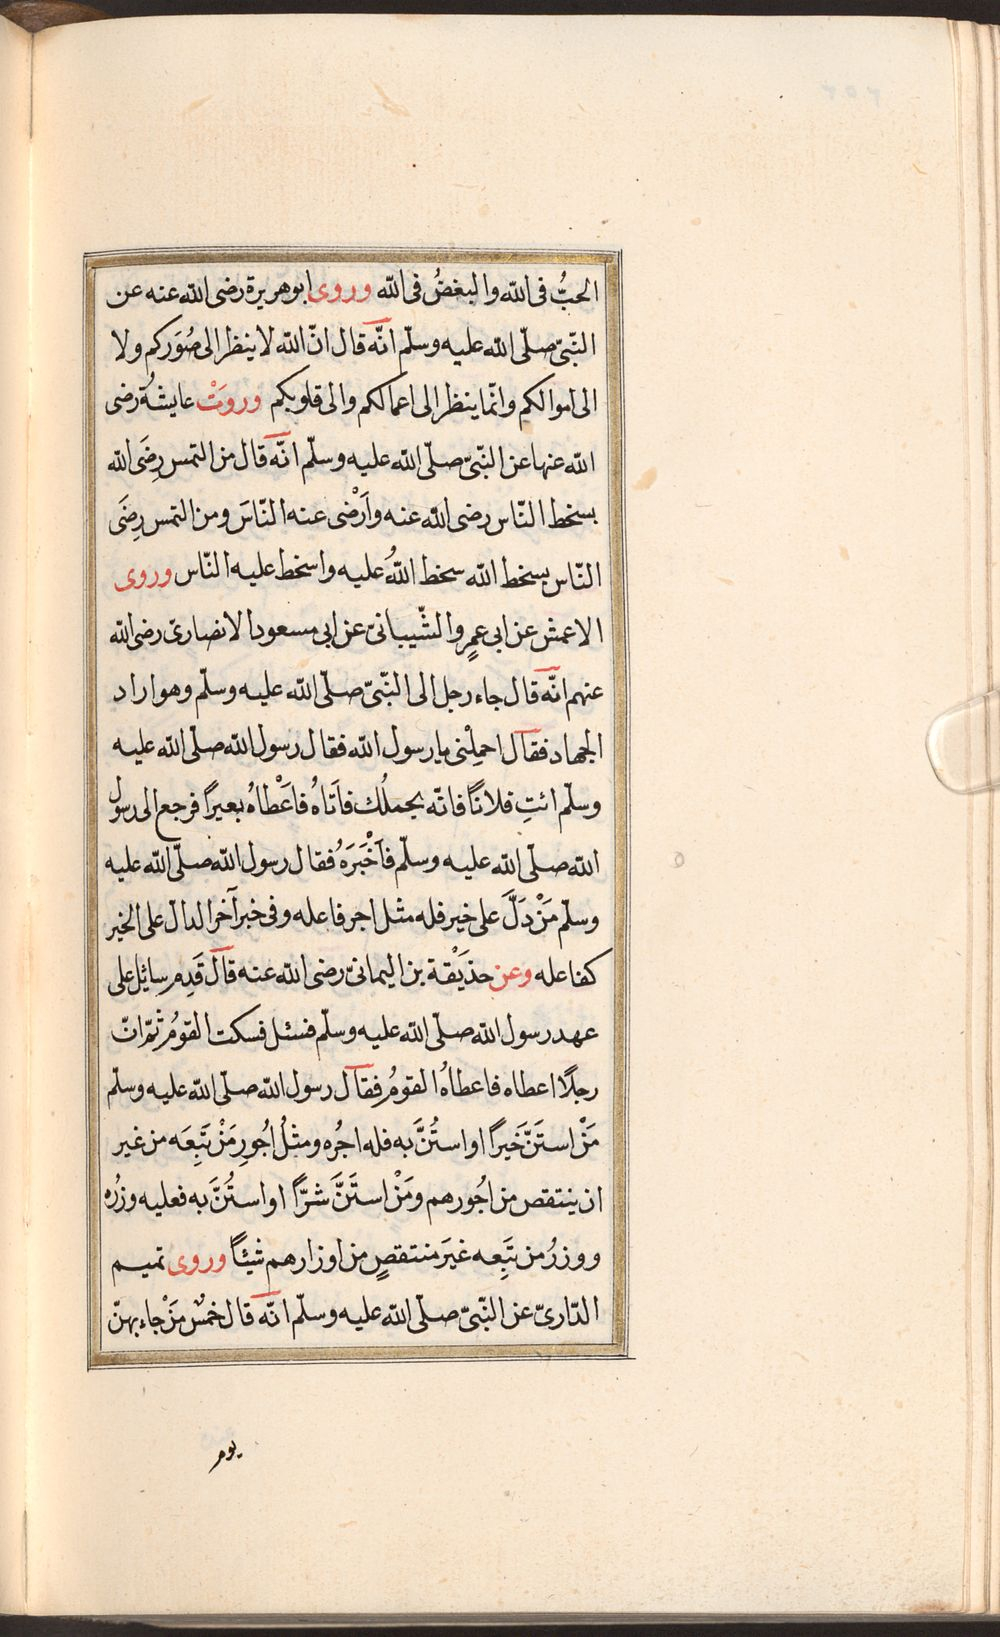 الحبُّ فى الله والبغضُ فى الله وروى ابو هريرة رضى الله عنه عن
النّبىّ صلّى الله عليه وسلّم انّه قال انّ الله لا ينظر الى صُوَركم ولا
الى اموالكم وانّما ينظر الى اعمالكم والى قلوبكم وروتْ عايشة رضى
الله عنها عن النّبىّ صلّى الله عليه وسلّم انّه قال من التمس رِضَى الله
بسخط النّاس رضى الله عنه وأَرْضى عنه النّاسَ ومن التمس رِضَى
النّاس بسخط الله سخط اللهُ عليه واسخط عليه النّاس وروى
الاعمش عن ابى عمرٍو الشّيبانىّ عن ابى مسعود الانصارىّ رضى الله
عنهم انّه قال جاء رجل الى النّبىّ صلّى الله عليه وسلّم وهو اراد
الجهاد فقال احمِلْنى يا رسول الله فقال رسول الله صلّى الله عليه
وسلّم ائتِ فلانًا فانّه يحملُك فأتاهُ فأَعْطاهُ بعيرًا فرجع الى رسول
الله صلّى الله عليه وسلّم فأَخْبَرَهُ فقال رسول الله صلّى الله عليه
وسلّم مَنْ دَلَّ على خير فله مثل اجر فاعله وفى خبر آخر الدالّ على الخير
كفاعله وعن حذَيْفة بن اليمانىّ رضى الله عنه قال قَدِم سائِل على
عهد رسول الله صلّى الله عليه وسلّم فسئل فسكت القومُ ثمّ انّ
رجلًا اعطاه فاعطاهُ القومُ فقال رسول الله صلّى الله عليه وسلّم
مَنْ استَنَّ خَيرًا او استُنَّ به فله اجُره ومثلُ اُجُورِ مَنْ تَبِعَه من غير
ان ينتقص من اُجُورهم ومَنْ استَنَّ شرًّا او استُنَّ به فعليه وزرُه
ووزرُ من تَبِعه غيرَ منتقصٍ من اوزارهم شيئًا وروى تميم
الدّارىّ عن النّبىّ صلّى الله عليه وسلّم انّه قال خمسٌ مَنْ جاء بهنّ
يوم